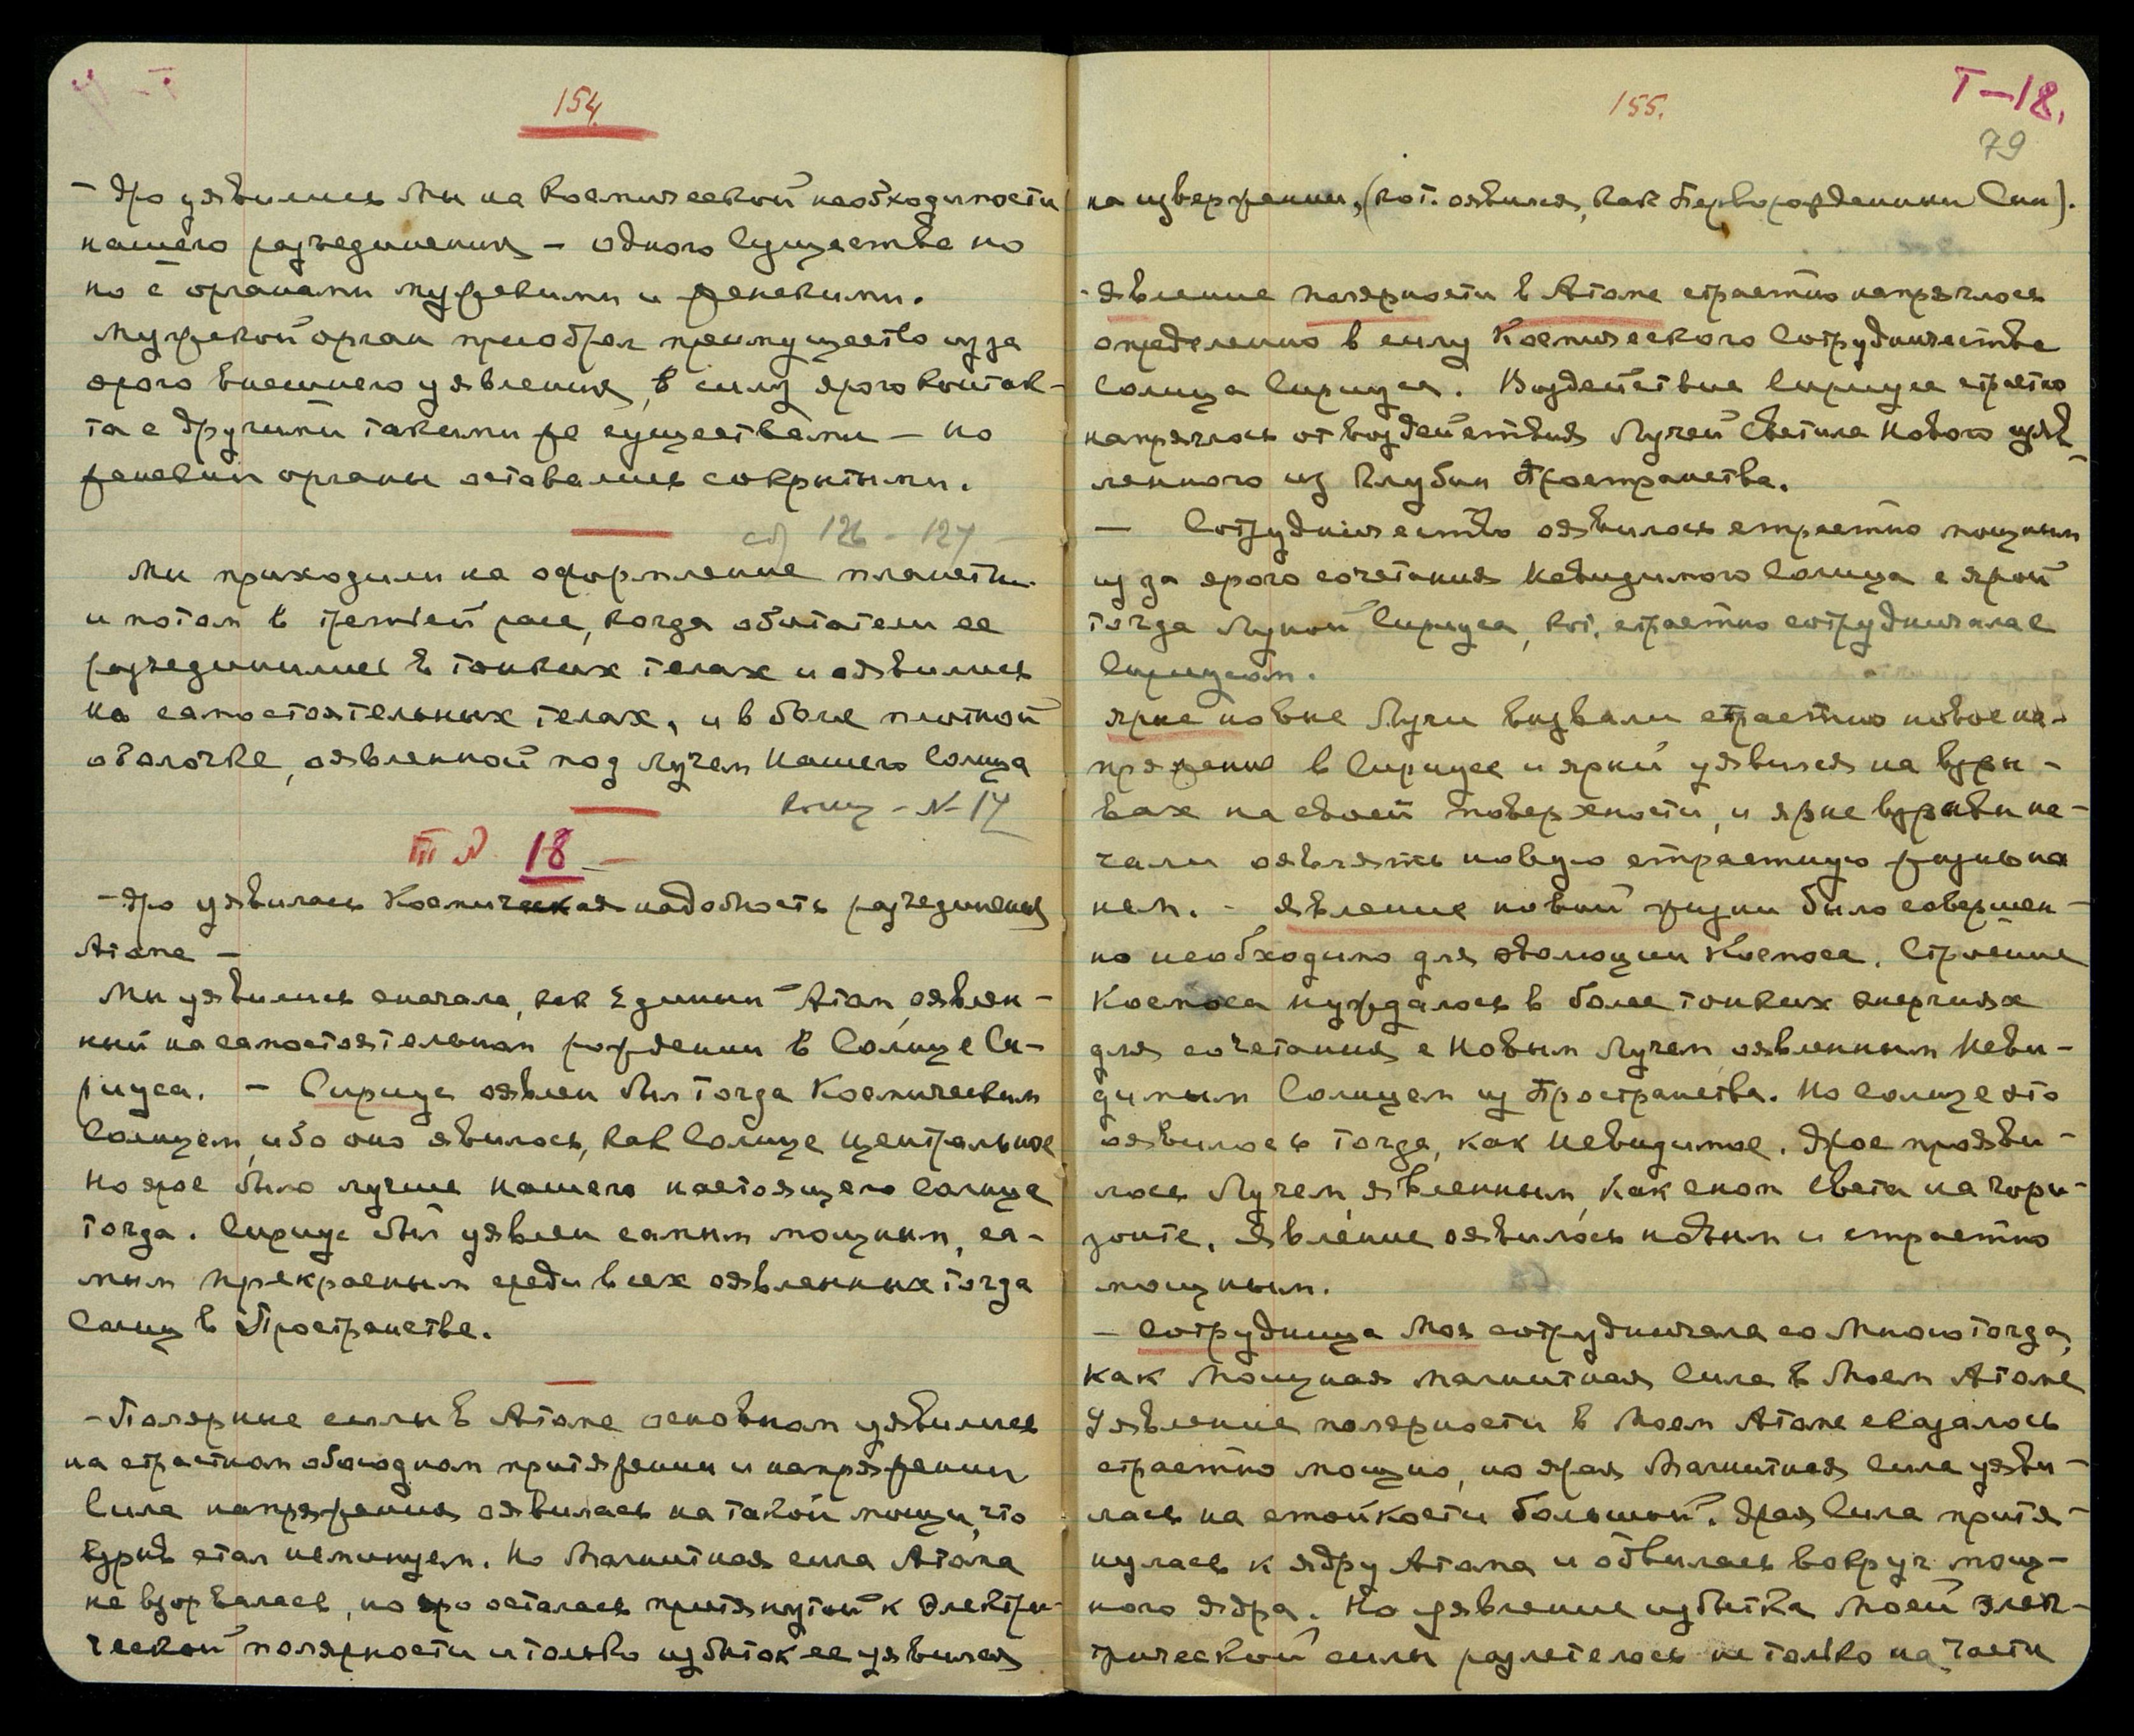 154.
– Яро уявились Мы на Космической необходимости
нашего разъединения – одного Существа но
но с органами мужскими и женскими.
Мужской орган приобрел преимущество из за
ярого внешнего уявления, в силу ярого контак-
та с другими такими же существами – но
женския органы оставались сокрытыми.
126 - 127
Мы приходили на оформление планеты
и потом в третьей расе, когда обитатели ее
разъединились в тонких телах и оявились
на самостоятельных телах, и в более плотной
оболочке, оявленной под лучем Нашего Солнца
конец - N- 17
18
– Яро уявилась Космическая надобность разъединения
Атома –
Мы уявились сначала, как Единый Атом, оявлен-
ный на самостоятельном рождении в Солнце Си-
риуса. – Сириус оявлен был тогда Космическим
Солнцем, ибо оно явилось, как Солнце центральное
Но ярое было лучше Нашего настоящего Солнца
тогда. Сириус был уявлен самым мощным, са-
мым прекрасным среди всех оявленных тогда
Солнц в Пространстве.
– Полярные силы в Атоме основном уявились
на страстном обоюдном притяжении и напряжении
Сила напряжения оявилась на такой мощи, что
взрыв стал неминуем. Но Магнитная сила Атома
не взорвалась, но яро осталась притянутой к Электри-
ческой полярности и только избыток ее уявился
155.
T-18.
79
на извержении, (кот. оявился, как Перворожденный Сын).
– Явление полярности в Атоме страстно напряглось
определенно в силу Космического Сотрудничества
Солнца Сириуса. Воздействие Сириуса страстно
напряглось от воздействия Лучей Светила Нового уяв-
ленного из Глубин Пространства.
– Сотрудничество оявилось страстно мощным
из за ярого сочетания Невидимого Солнца с ярой
тогда Луной Сириуса, кот. страстно сотрудничала с
Сириусом.
Ярые новые Лучи вызвали страстно новое на-
пряжение в Сириусе и ярый уявился на взры-
вах на своей поверхности, и ярые взрывы на-
чали оявлять новую страстную жизнь на
нем. – Явление новой жизни было совершен-
но необходимо для эволюции Космоса. Строение
Космоса нуждалось в более тонких энергиях
для сочетания с Новым Лучем, оявленным Неви-
димым Солнцем из Пространства. Но Солнце это
оявилось тогда, как Невидимое. Ярое прояви-
лось Лучем, явленным, как сноп света на гори-
зонте. Явление оявилось новым и страстно
мощным.
– Сотрудница Моя сотрудничала со Мною тогда,
как Мощная Магнитная Сила в Моем Атоме
Уявление полярности в Моем Атоме сказалось
страстно мощно, но ярая Магнитная сила уяви-
лась на стойкости большой. Ярая Сила притя-
нулась к ядру Атома и обвилась вокруг мощ-
ного Ядра. Но уявление избытка Моей элек-
трической силы разлетелось не только на части